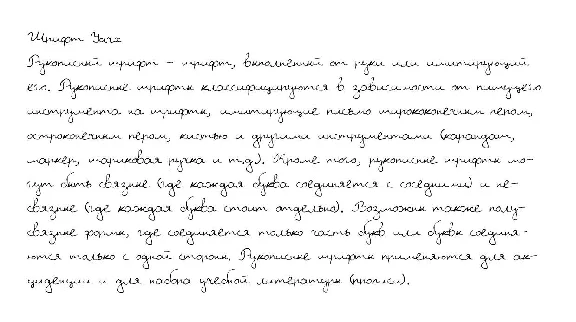 Шрифт Yarix
Рукописный шрифт – шрифт, выполненный от руки или имитирующий
его. Рукописные шрифты классифицируются в зависимости от пишущего
инструмента на шрифты, имитирующие письмо ширококонечным пером,
остроконечным пером, кистью и другими инструментами (карандаш,
маркер, шариковая ручка и т.д.). Кроме того, рукописные шрифты мо-
гут быть связные (где каждая буква соединяется с соседними) и не-
связные (где каждая буква стоит отдельно). Возможны также полу-
связные формы, где соединяется только часть букв или буквы соединя-
ются только с одной стороны. Рукописные шрифты применяются для ак-
циденции и для набора учебной литературы (прописи).